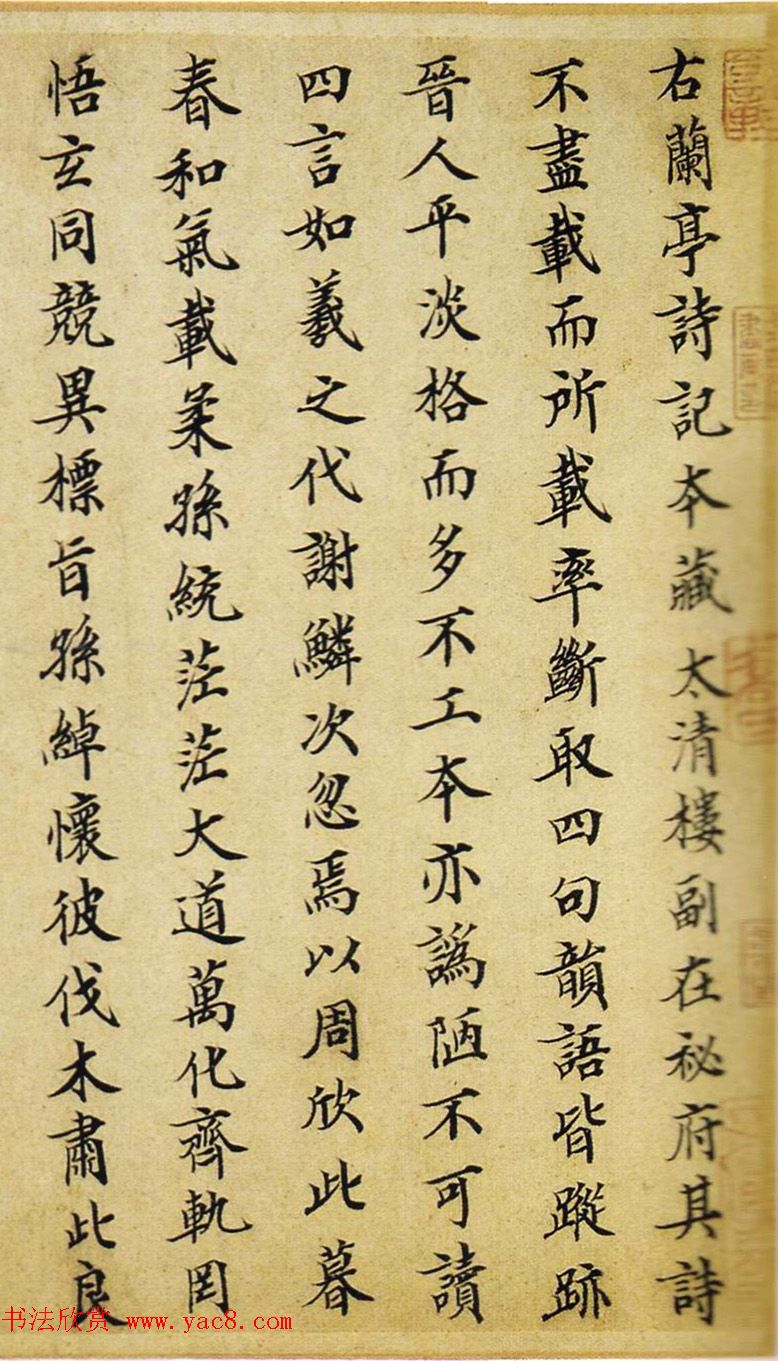 右蘭亭詩記本藏太清樓副在祕府其詩
不盡載而所載率斷取四句韻語皆蹤跡
晉人平淡格而多不工本亦譌陋不可讀
四言如羲之代謝鱗次忽焉以周欣此暮
春和氣載柔孫統茫茫大道萬化齊軌罔
悟玄同競異標旨孫綽懷彼伐木肅此良
书法欣赏 www.yac8.com